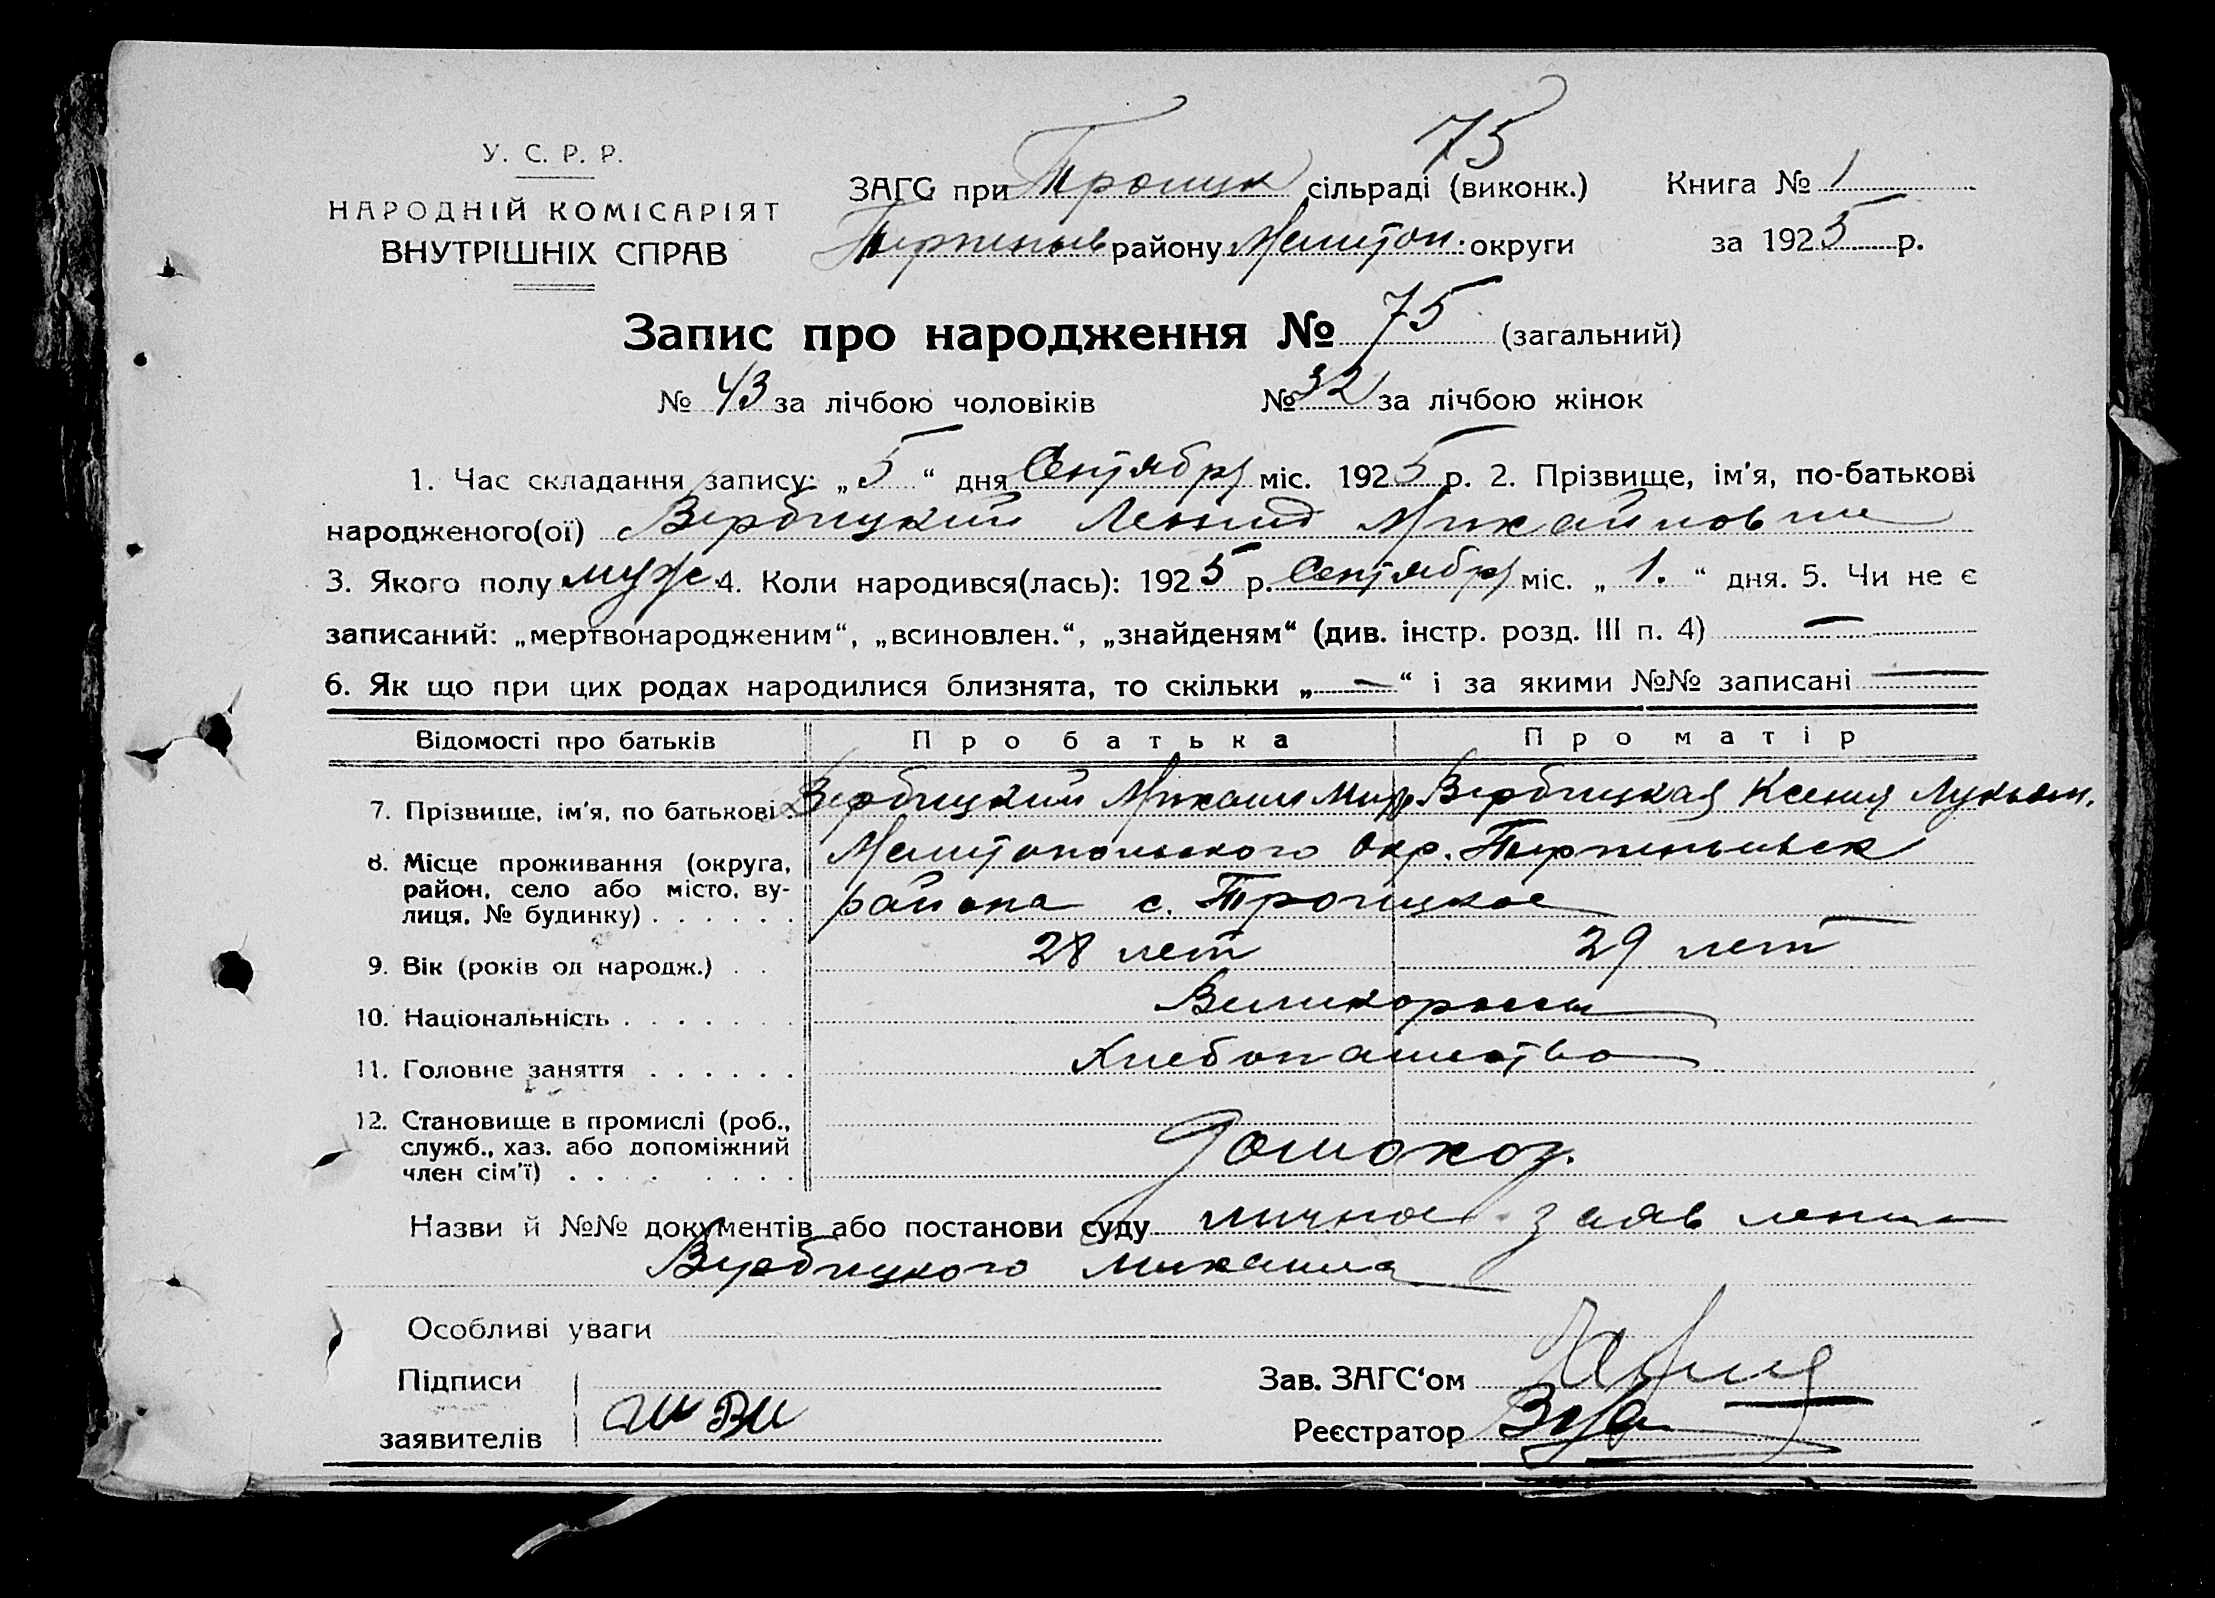 75
У. С. Р. Р.
НАРОДНІЙ КОМІСАРІЯТ
ВНУТРІШНІХ СПРАВ
ЗАГС при Троицк сільраді (виконк.) Книга № 1
Терпеньев району Мелитоп. округи за 1925 р.
Запис про народження № 75 (загальний)
№ 43 за лічбою чоловіків № 32 за лічбою жінок
1. Час складання запису: „5“ дня Сентября міс. 1925 р. 2. Прізвище, ім'я, по-батькові
народженого(ої) Вербицкий Леонид Михайлович
3. Якого полу муж. 4. Коли народився(лась): 1925 р. Сентября міс. „1.“ дня. 5. Чи не є
записаний: „мертвонародженим“, „всиновлен.“, „знайденям“ (див. інстр. розд. III п. 4) —
6. Як що при цих родах народилися близнята, то скільки „—“ і за якими №№ записані —
Відомості про батьків Про батька Про матір
7. Прізвище, ім'я, по батькові. Вербицкий Михаил Вербицкая Ксения Лукьян.
8. Місце проживання (округа, район, село або місто, вулиця, № будинку) . . . . . . Мелитопольского Окр. Терпеньевск
района с. Троицкое
9. Вік (років од народж.) . . 28 лет 29 лет
10. Національність . . . . . . . Великороссы
11. Головне заняття . . . . . . Хлебопашество
12. Становище в промислі (роб., служб., хаз. або допоміжний член сім'ї) . . . . . . . . Домохоз.
Назви й №№ документів або постанови суду личное заявление
Вербицкого Михаила
Особливі уваги
Підписи
заявителів
Зав. ЗАГС'ом
Реєстратор